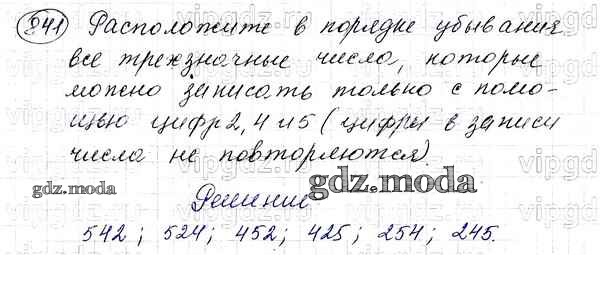 841 Расположите в порядке убывания
все трехзначные числа, которые
можно записать только с помо-
щью цифр 2, 4 и 5 (цифры в записи
числа не повторяются).
gdz.moda
gdz.moda
Решение
542; 524; 452; 425; 254; 245.